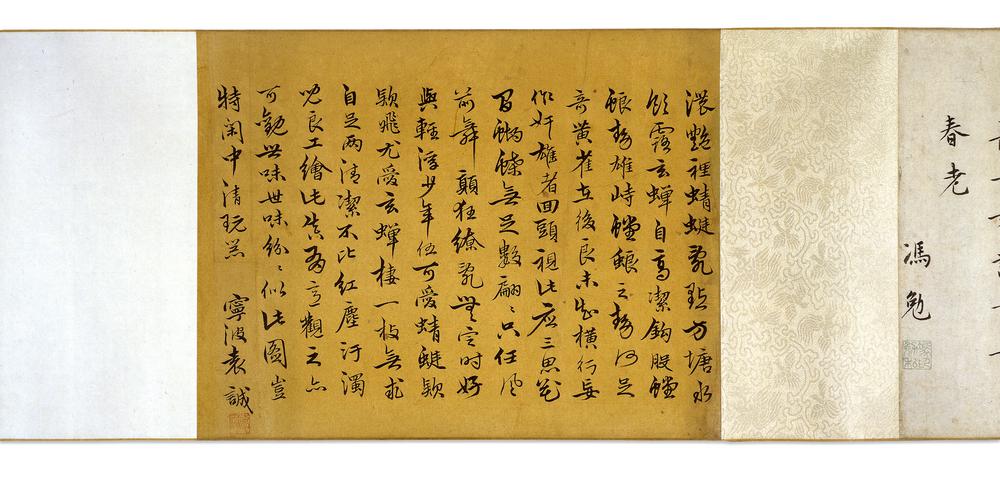 春老
馮勉
濃艷裡蜻蜓亂點方塘水
飲露玄蟬自高潔鈎股螗
蜋務雄峙螗蜋之務何足
奇黃雀在後良未知橫行妄
作奸雄者回頭視此应三思花
間蝴蝶無足數翩〻只任風
前舞顛狂繚亂無定時好
與輕浮少年伍可愛蜻蜓款
款飛尤愛玄蟬棲一枝無求
自足兩清潔不比紅塵汙濁
兒良工繪此真有意觀之亦
可觀世味世味紛〻似此圖豈
特閑中清玩焉 寧波袁誠